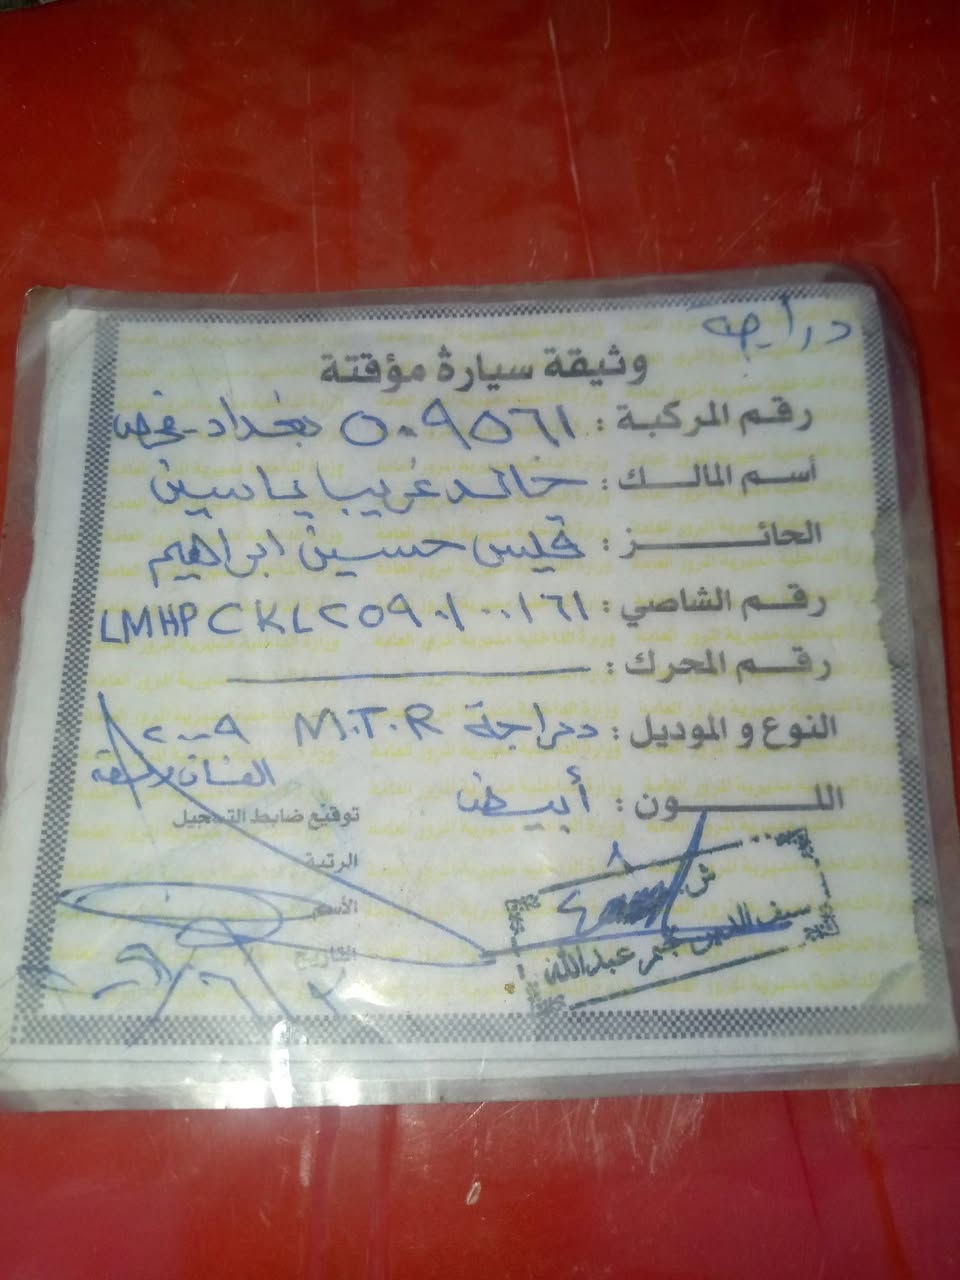 دراجة
وثيقة سيارة مؤقتة
رقم المركبة : ٥٠٩٥٦١ بغداد - فحص
أسم المالك : خالد غريب ياسين
الحائز : قيس حسين ابراهيم
رقم الشاصي : LMHPCKL٢٥٩٠١٠٠١٦١
رقم المحرك :
النوع و الموديل : دراجة M.T.R ٢٠٠٩
اللون : أبيض
توقيع ضابط التسجيل
الرتبة
الأسم
التاريخ
ش.
٨
٤
سيف الدين نجم عبدالله